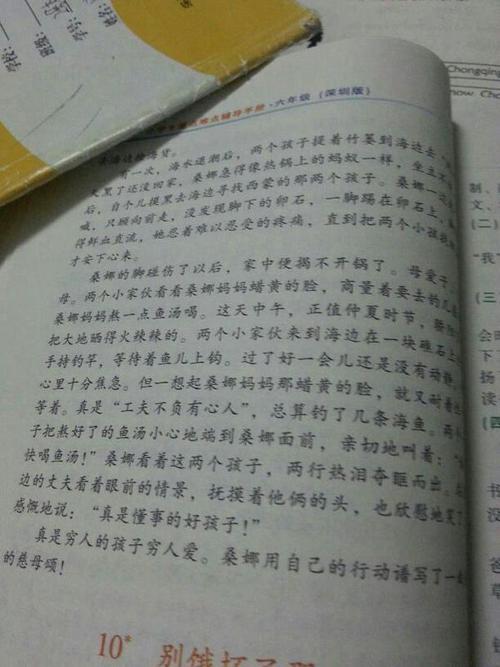 重点难点辅导手册·六年级（深圳版）
去海边捡海货。
有一次，海水退潮后，两个孩子提着竹篓到海边去
天黑了还没回家，桑娜急得像热锅上的蚂蚁一样，坐立不
后，自个儿摸黑去海边寻找西蒙的那两个孩子。桑娜一边
喊，只顾向前走，没发现脚下的卵石，一脚踢在卵石上，
得鲜血直流，她忍着难以忍受的疼痛，直到把两个小孩找
才安下心来。
桑娜的脚碰伤了以后，家中便揭不开锅了。母爱子，
母。两个小家伙看看桑娜妈妈蜡黄的脸，商量着要去钓几
桑娜妈妈熬一点鱼汤喝。这天中午，正值仲夏时节，
把大地晒得火辣辣的。两个小家伙来到海边在一块礁石上
手持钓竿，等待着鱼儿上钩。过了好一会儿还是没有动静，
心里十分焦急。但一想起桑娜妈妈那蜡黄的脸，就又耐着
等着。真是“工夫不负有心人”，总算钓了几条海鱼。两
子把熬好了的鱼汤小心地端到桑娜面前，亲切地叫着：“
快喝鱼汤！”桑娜看着这两个孩子，两行热泪夺眶而出。
边的丈夫看着眼前的情景，抚摸着他俩的头，也欣慰地笑了
感慨地说：“真是懂事的好孩子！”
真是穷人的孩子穷人爱。桑娜用自己的行动谱写了一
的慈母颂！
10* 别饿坏了那
Chongqing
how Cho
制、
文、
（二）
“我
（三
会时
下
扬
读
（四
书
没
爸
草
这